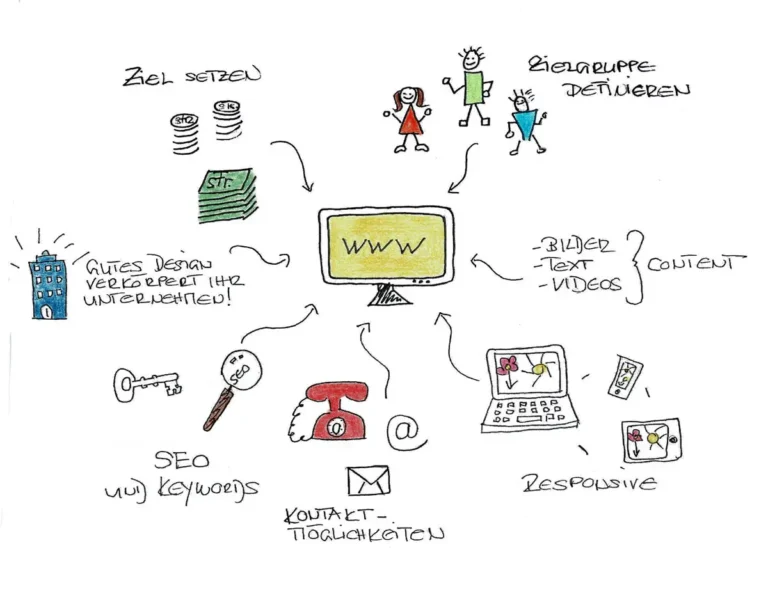 ZIEL SETZEN
ZIELGRUPPE
DEFINIEREN
SFR.
WWW
GUTES DESIGN
VERKÖRPERT IHR
UNTERNEHMEN!
-BILDER
-TEXT
-VIDEOS
CONTENT
SEO
SEO
UND KEYWORDS
@
KONTAKT-
MÖGLICHKEITEN
RESPONSIVE